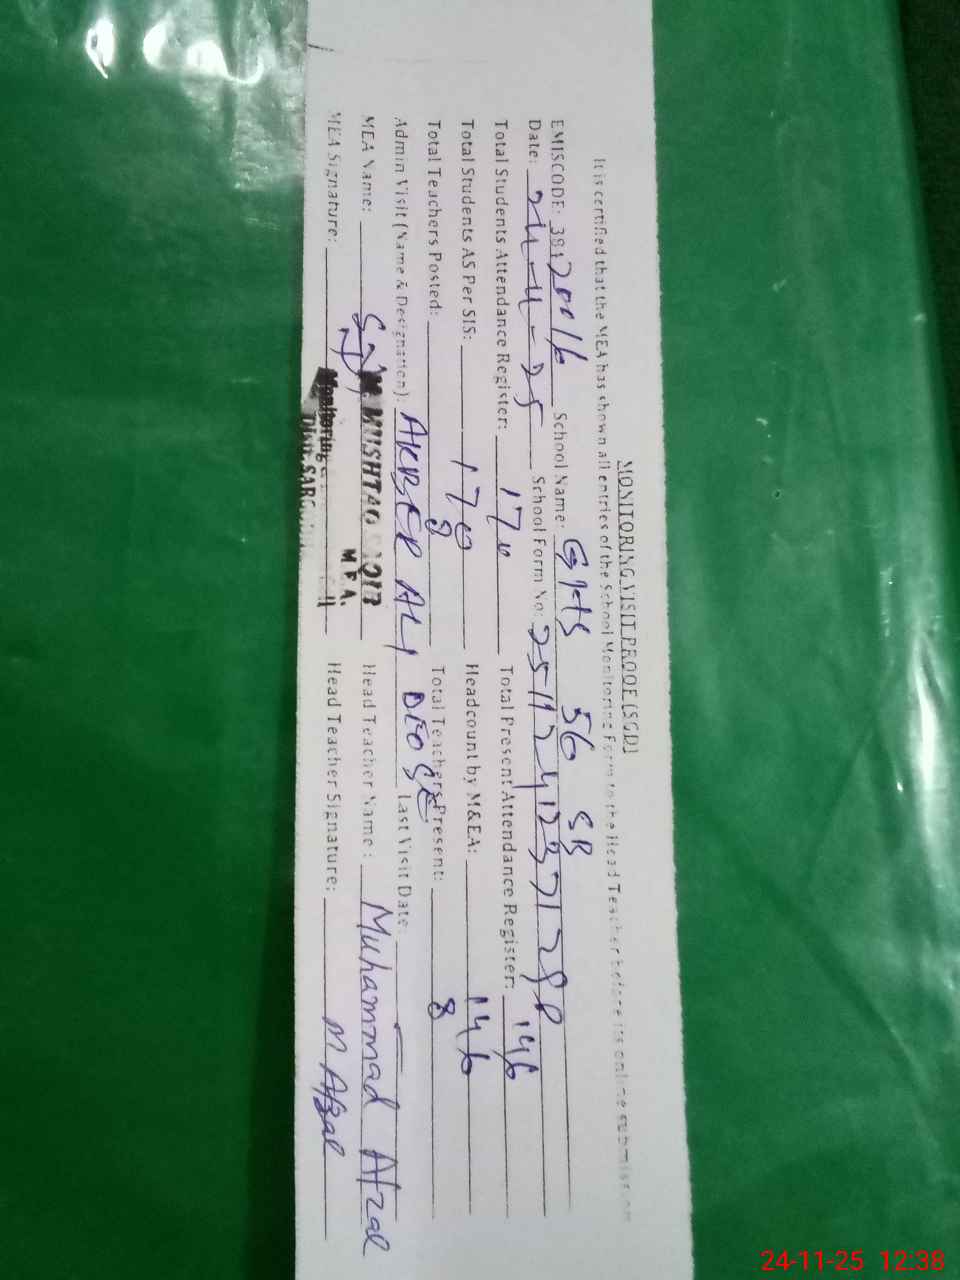 MONITORING VISIT PROOF (SGD)
It is certified that the MEA has shown all entries of the School Monitoring Form to the Head Teacher before its online submission
EMISCODE: 38120016 School Name: GHS 56 SB
Date: 24-11-25 School Form No:
Total Students Attendance Register: 170 Total Present Attendance Register: 146
Total Students AS Per SIS: 170 Headcount by M&EA: 146
Total Teachers Posted: 8 Total Teachers Present: 8
Admin Visit (Name & Designation): AKBER ALI Last Visit Date:
MEA Name: MUSHTAQ Head Teacher Name: Muhammad Afzal
M.E.A.
MEA Signature: Monitoring Head Teacher Signature: M Afzal
24-11-25 12:38